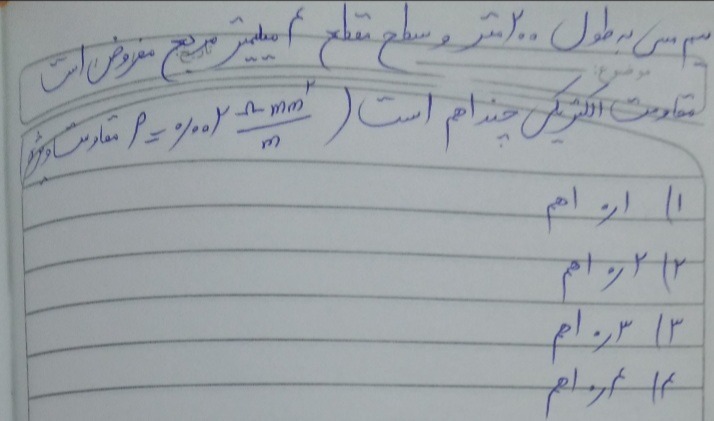 سیم مسی به طول ۲۰۰ متر و سطح مقطع ۴ میلیمتر مربع مفروض است
موضوع:
مقاومت الکتریکی چند اهم است ( ρ = ۰/۰۰۲ Ω mm² / m مقاومت ویژه
۱) ۰٫۱ اهم
۲) ۰٫۲ اهم
۳) ۰٫۳ اهم
۴) ۰٫۴ اهم